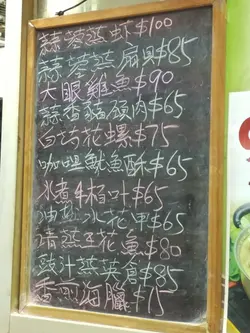 蒜蓉蒸虾$100
蒜蓉蒸扇貝$85
大眼雞魚$90
蒜香豬頸肉$65
白灼花螺$75
咖喱魷魚酥$65
水煮牛柏叶$65
油鹽水花甲$65
清蒸王花魚$80
豉汁蒸英倉$85
香煎海臘$75